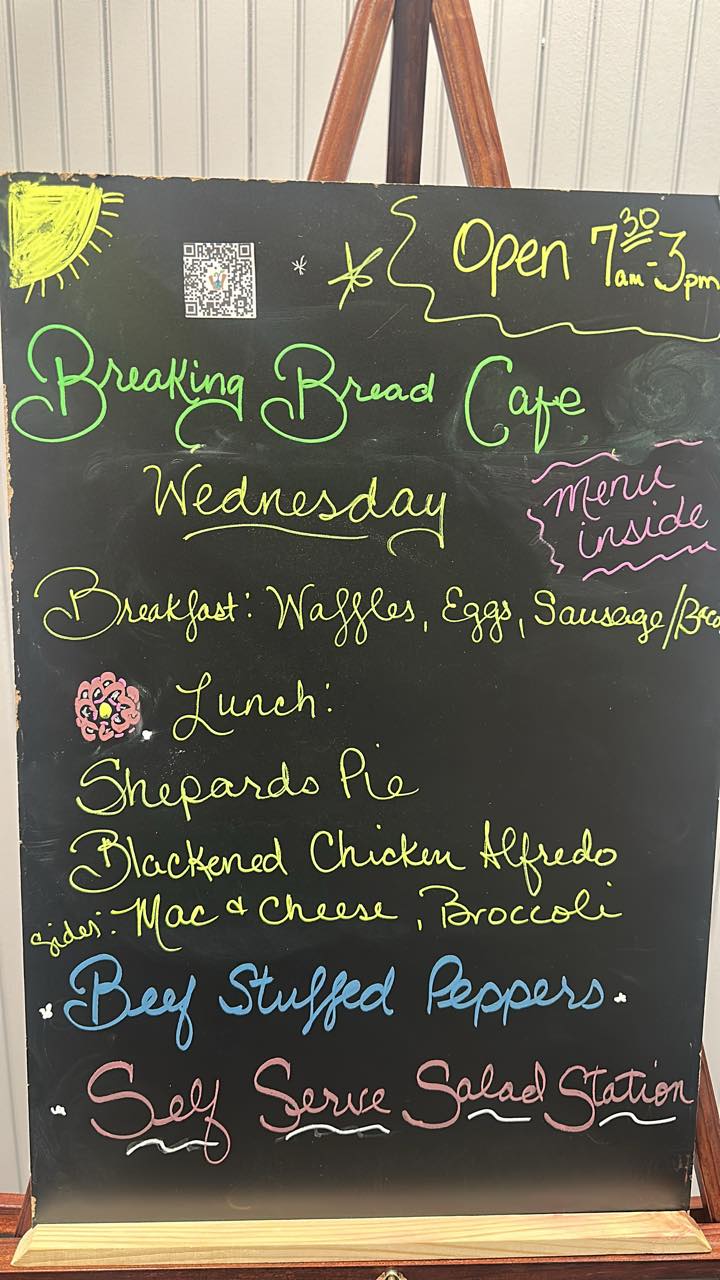 Open 7³⁰am-3pm
Breaking Bread Cafe
Wednesday
menu
inside
Breakfast: Waffles, Eggs, Sausage/
Lunch:
Shepards Pie
Blackened Chicken Alfredo
Sides: Mac & Cheese, Broccoli
Beef Stuffed Peppers
Self Serve Salad Station